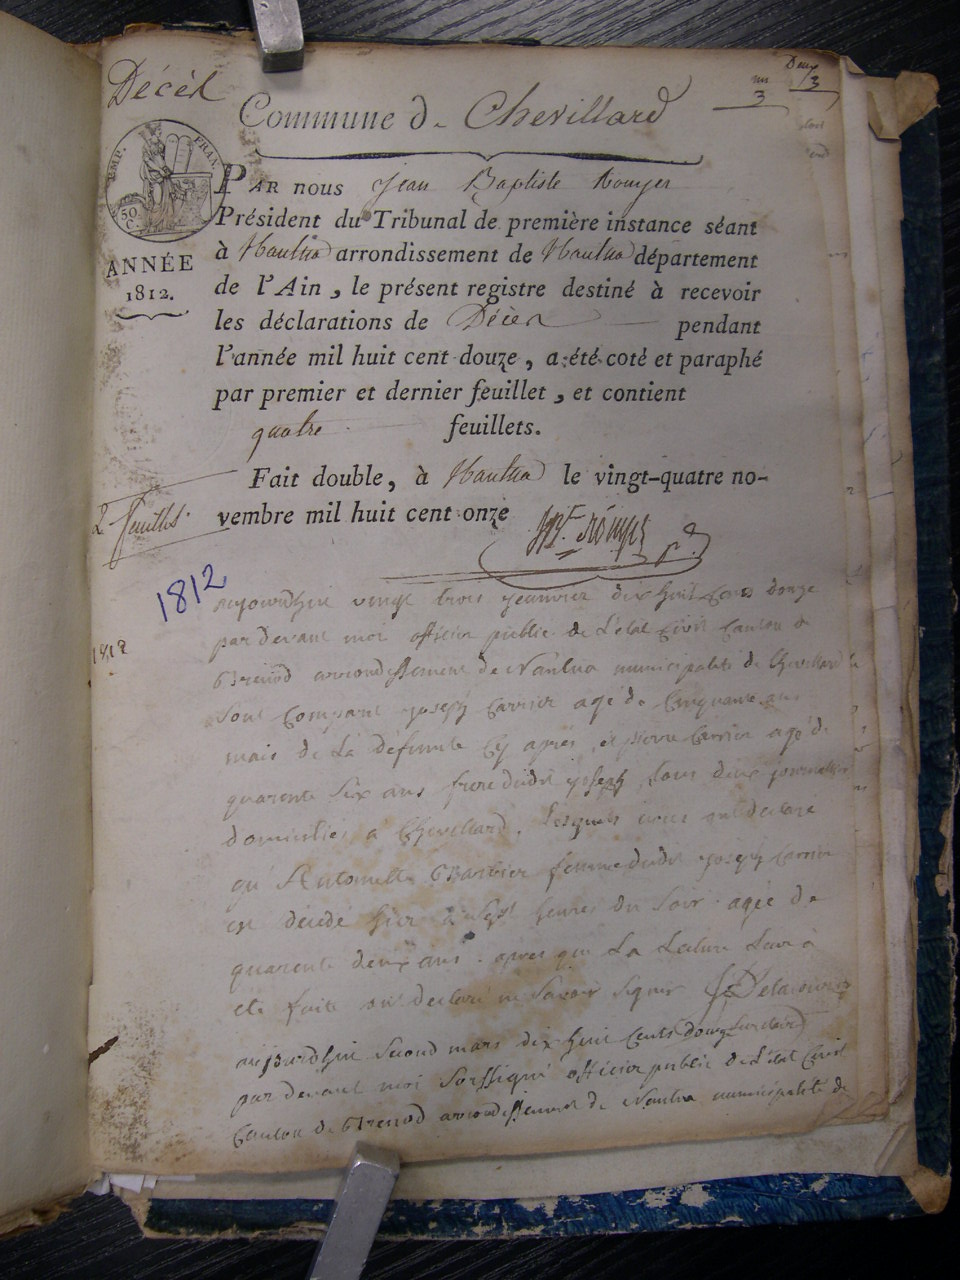 Décès
un 3
Deux 3
Commune d - Chevillard
EMP. FRAN.
50 C.
ANNÉE
1812.
PAR nous Jean Baptiste Rouyer
Président du Tribunal de première instance séant
à Nantua arrondissement de Nantua département
de l'Ain, le présent registre destiné à recevoir
les déclarations de Décès pendant
l'année mil huit cent douze, a été coté et paraphé
par premier et dernier feuillet, et contient
quatre feuillets.
Fait double, à Nantua le vingt-quatre no-
vembre mil huit cent onze
2 feuillets.
1812
1812
aujourdhui vingt trois jeanvier dix huit cens douze
par devant moi officier public de L'état Civil Canton de
Brenod arrondissement de Nantua municipalité de Chevillard
sont Comparut joseph Carrier agé de Cinquante ans
mais de La défunte Cy après, et pierre Carrier agé de
quarente six ans frere dudit joseph, tous deux journallier
domiciliés a Chevillard, Lesquels mon déclare
qu'Antoinette Barbier femme dudit joseph Carrier
est décédé hier à sept heures du soir agée de
quarente deux ans. apres que La Lecture Leur à
été faite ont declaré ne savoir signer
aujourdhui second mars dix huit Cents douze
par devant moi soussigné officier public de L'état Civil
Canton de Brenod arrondissement de Nantua municipalité de